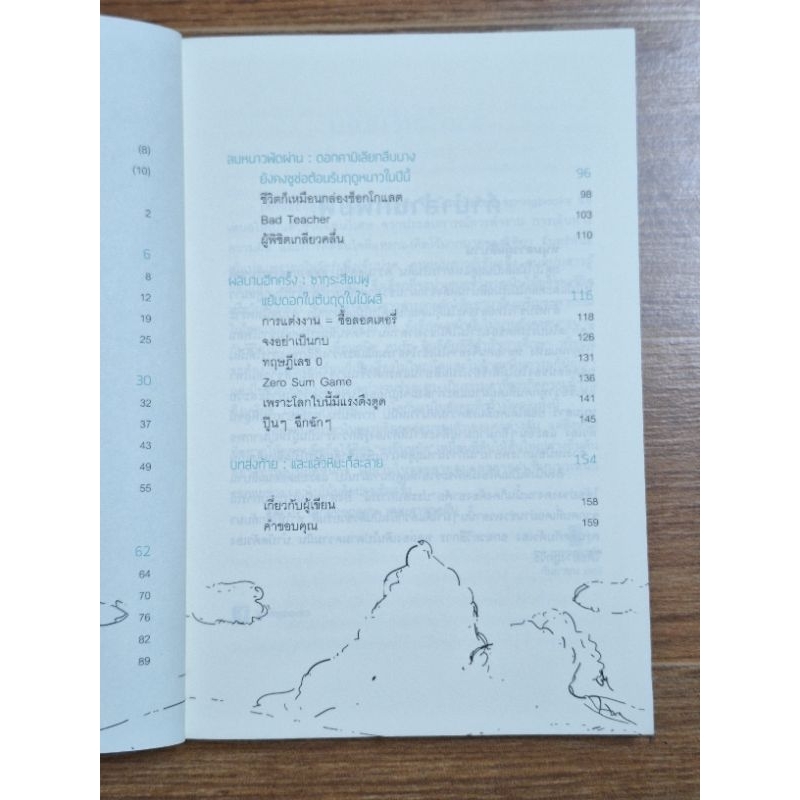 (8)
(10)
2
6
8
12
19
25
30
32
37
43
49
55
62
64
70
76
82
89
ลมหนาวพัดผ่าน : ดอกคามิเลียกลีบบาง
ยังคงชูช่อต้อนรับฤดูหนาวในปีนี้ 96
ชีวิตก็เหมือนกล่องช็อกโกแลต 98
Bad Teacher 103
ผู้พิชิตเกลียวคลื่น 110
ผลิบานอีกครั้ง : ซากุระสีชมพู
แย้มดอกในต้นฤดูใบไม้ผลิ 116
การแต่งงาน = ซื้อลอตเตอรี่ 118
จงอย่าเป็นกบ 126
ทฤษฎีเลข 0 131
Zero Sum Game 136
เพราะโลกใบนี้มีแรงดึงดูด 141
ปู๊นๆ ฉึกฉักๆ 145
บทส่งท้าย : และแล้วหิมะก็ละลาย 154
เกี่ยวกับผู้เขียน 158
คำขอบคุณ 159